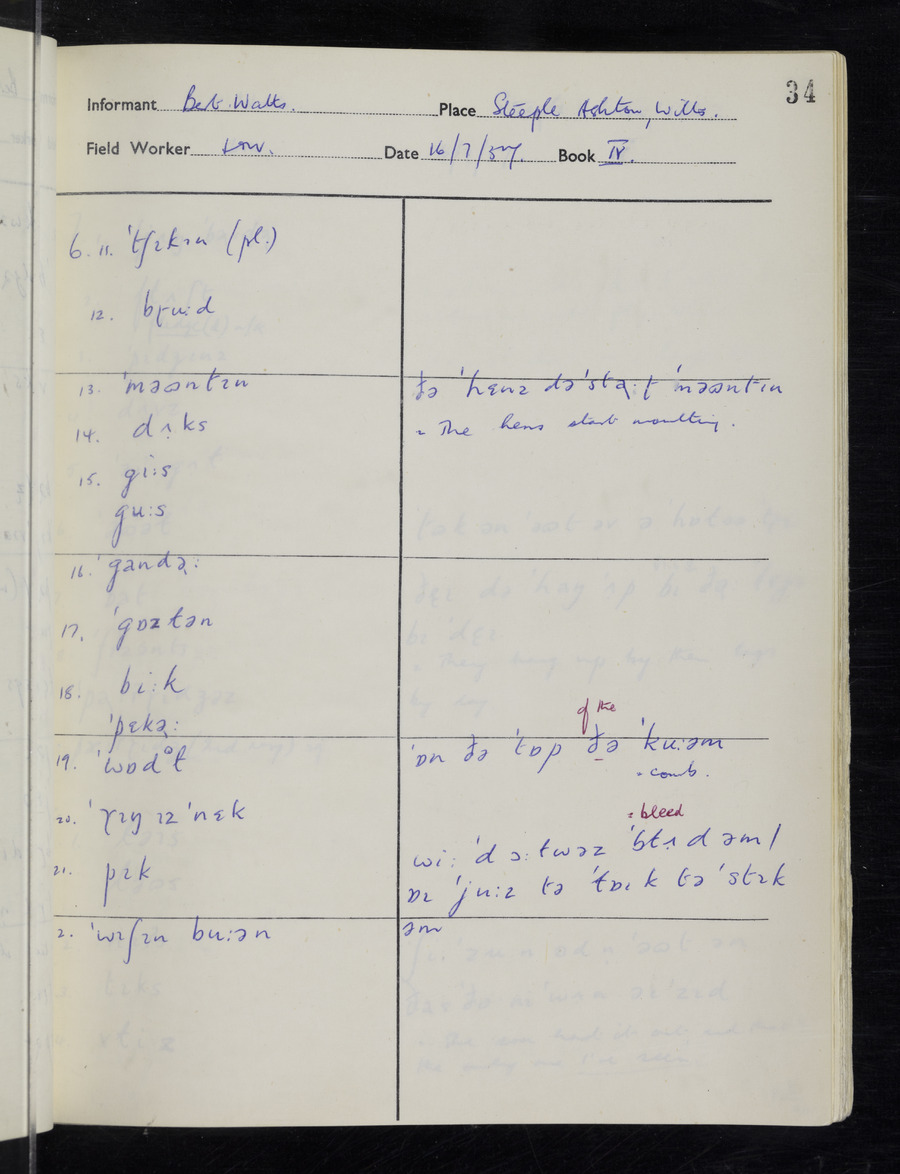 34
Informant Bert Walts. Place Steeple Ashton, Wilts.
Field Worker Date 16/7/57. Book IV.
6. 11. ˈtʃɪkɪn (pl.)
12. bɽuːd
13. ˈməʊntɪn
ðə ˈhɛnz də ˈstɑːɽt ˈməʊntɪn
14. dʌks
= The hens start moulting.
15. giːs
guːs
16. ˈgandəɽː
17. ˈgɒztən
18. biːk
ˈpɛkəɽː
of the
19. ˈwɒdᵊɫ
ˈɒn ðə ˈtɒp ðə ˈkuːəm
= comb.
20. ˈɽɪŋ ɪz ˈnɛk
= bleed
21. pɪk
wiː ˈdɔːtwəz ˈbɫɪd əm /
ɒɪ ˈjuːz tə ˈtɒɪk tə ˈstɪk
2. ˈwɪʃɪn buːən
əm